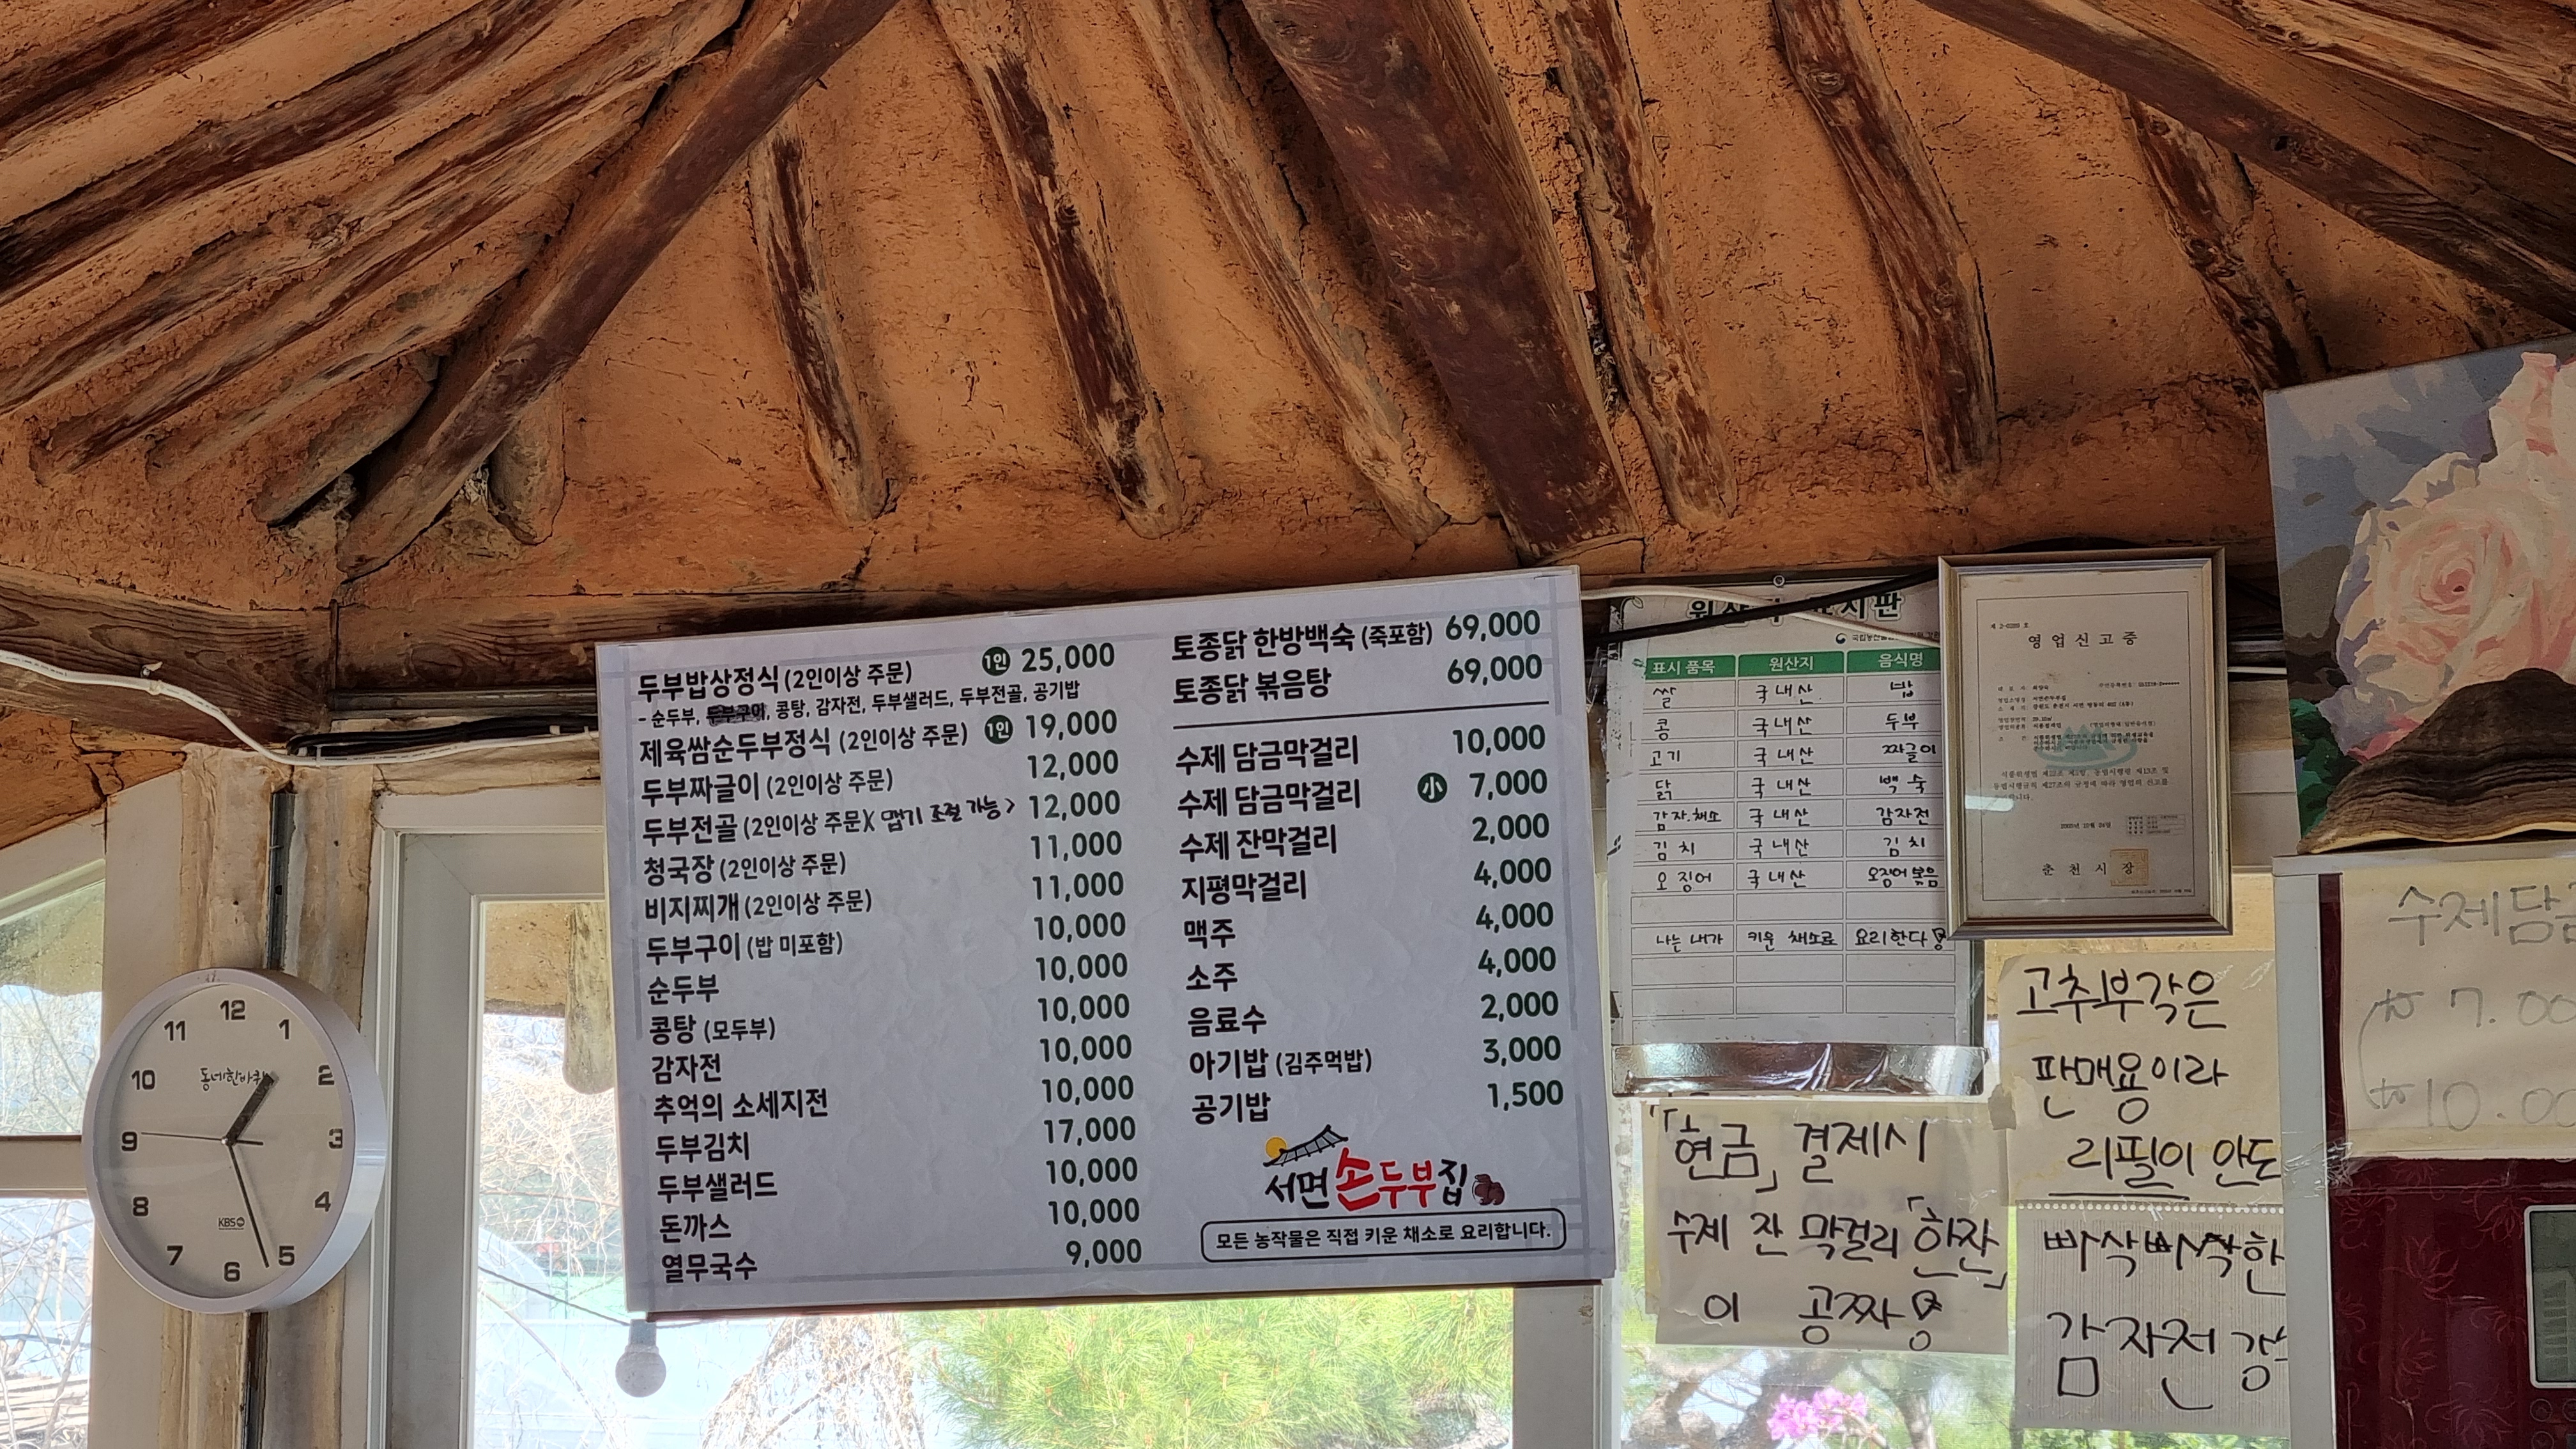 두부밥상정식 (2인이상 주문) 1인 25,000
- 순두부, 두부구이, 콩탕, 감자전, 두부샐러드, 두부전골, 공기밥
제육쌈순두부정식 (2인이상 주문) 1인 19,000
두부짜글이 (2인이상 주문) 12,000
두부전골 (2인이상 주문)( 맵기 조절 가능 > 12,000
청국장 (2인이상 주문) 11,000
비지찌개 (2인이상 주문) 11,000
두부구이 (밥 미포함) 10,000
순두부 10,000
콩탕 (모두부) 10,000
감자전 10,000
추억의 소세지전 10,000
두부김치 17,000
두부샐러드 10,000
돈까스 10,000
열무국수 9,000
토종닭 한방백숙 (죽포함) 69,000
토종닭 볶음탕 69,000
수제 담금막걸리 10,000
수제 담금막걸리 小 7,000
수제 잔막걸리 2,000
지평막걸리 4,000
맥주 4,000
소주 4,000
음료수 2,000
아기밥 (김주먹밥) 3,000
공기밥 1,500
서면 손두부집
모든 농작물은 직접 키운 채소로 요리합니다.
표시 품목 원산지 음식명
쌀 국내산 밥
콩 국내산 두부
고기 국내산 짜글이
닭 국내산 백숙
감자.채소 국내산 감자전
김치 국내산 김치
오징어 국내산 오징어볶음
나는 내가 키운 채소로 요리한다
영업신고증
춘천시장
「현금」 결제시
수제 잔 막걸리 「한잔」
이 공짜
고추부각은
판매용이라
리필이 안도
빠삭빠삭한
감자전
수제담금
₩ 7.00
₩10.00
12
1
2
3
4
5
6
7
8
9
10
11
동네한바퀴
KBS